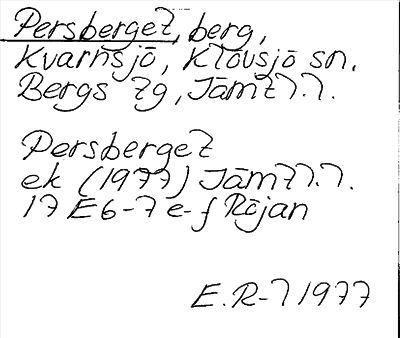 Persberget, berg,
Kvarnsjö, Klövsjö sn.
Bergs tg, Jämtl.
Persberget
ek (1977) Jämtl.
17 E 6-7 e-f Röjan
E.R-l 1977